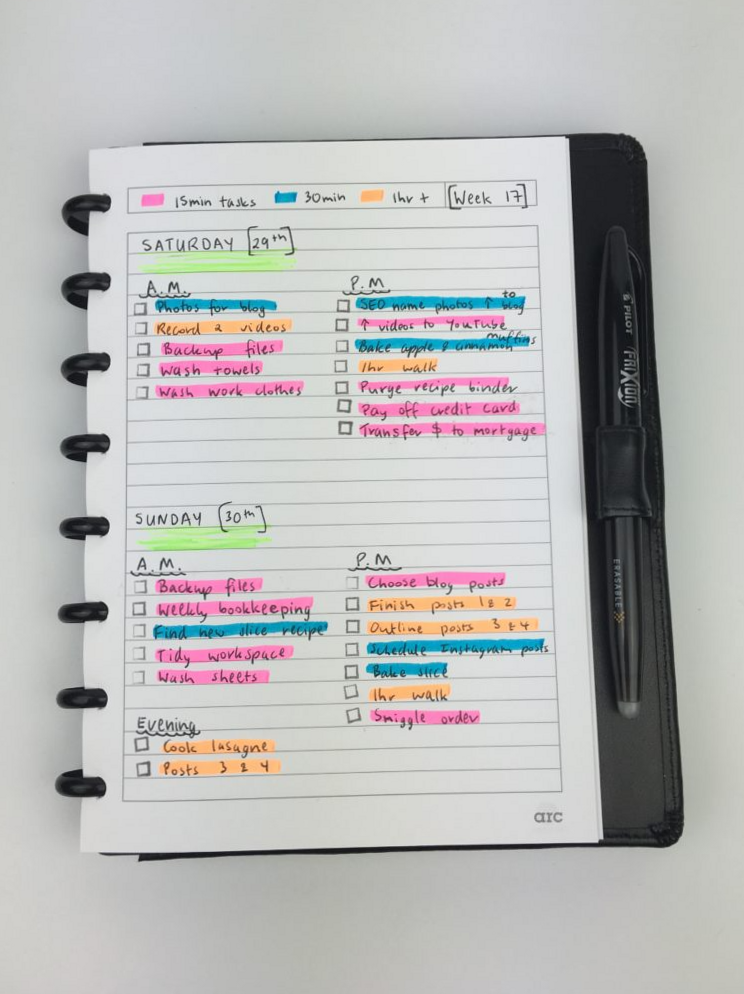 15min tasks 30min 1hr + [Week 17]
SATURDAY [29th]
A.M.
Photos for blog
Record 2 videos
Backup files
Wash towels
Wash work clothes
P.M
SEO name photos ↑ to blog
↑ videos to YouTube
Bake apple & cinnamon muffins
1hr walk
Purge recipe binder
Pay off credit card
Transfer $ to mortgage
SUNDAY [30th]
A.M.
Backup files
Weekly bookkeeping
Find new slice recipe
Tidy workspace
Wash sheets
Evening
Cook lasagne
Posts 3 & 4
P.M
Choose blog posts
Finish posts 1 & 2
Outline posts 3 & 4
Schedule Instagram posts
Bake slice
1hr walk
Smiggle order
arc
PILOT FRIXION
ERASABLE